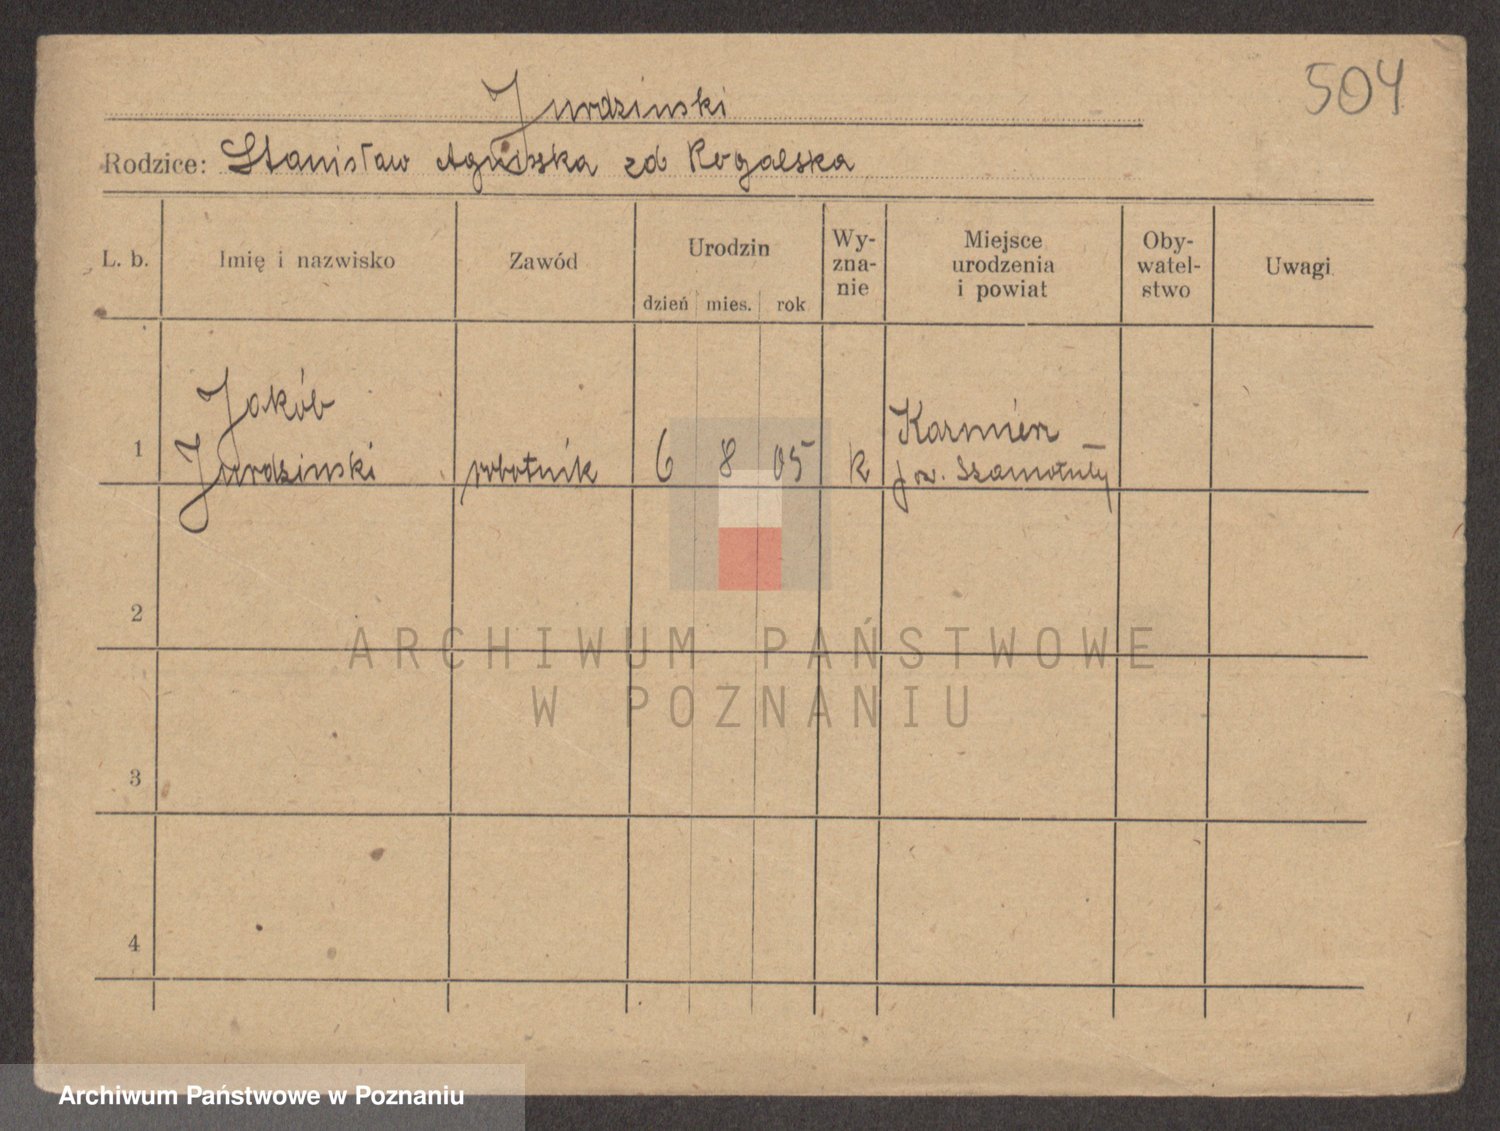 504
Jurdzinski
Rodzice: Stanisław Agniszka zd Rogalska
L. b.
Imię i nazwisko
Zawód
Urodzin
dzień mies. rok
Wy-
zna-
nie
Miejsce
urodzenia
i powiat
Oby-
watel-
stwo
Uwagi
1
Jakób
Jurdzinski
robotnik
6 8 05
k
Kazmierz
pow. Szamotuły
2
3
4
ARCHIWUM PAŃSTWOWE
W POZNANIU
Archiwum Państwowe w Poznaniu